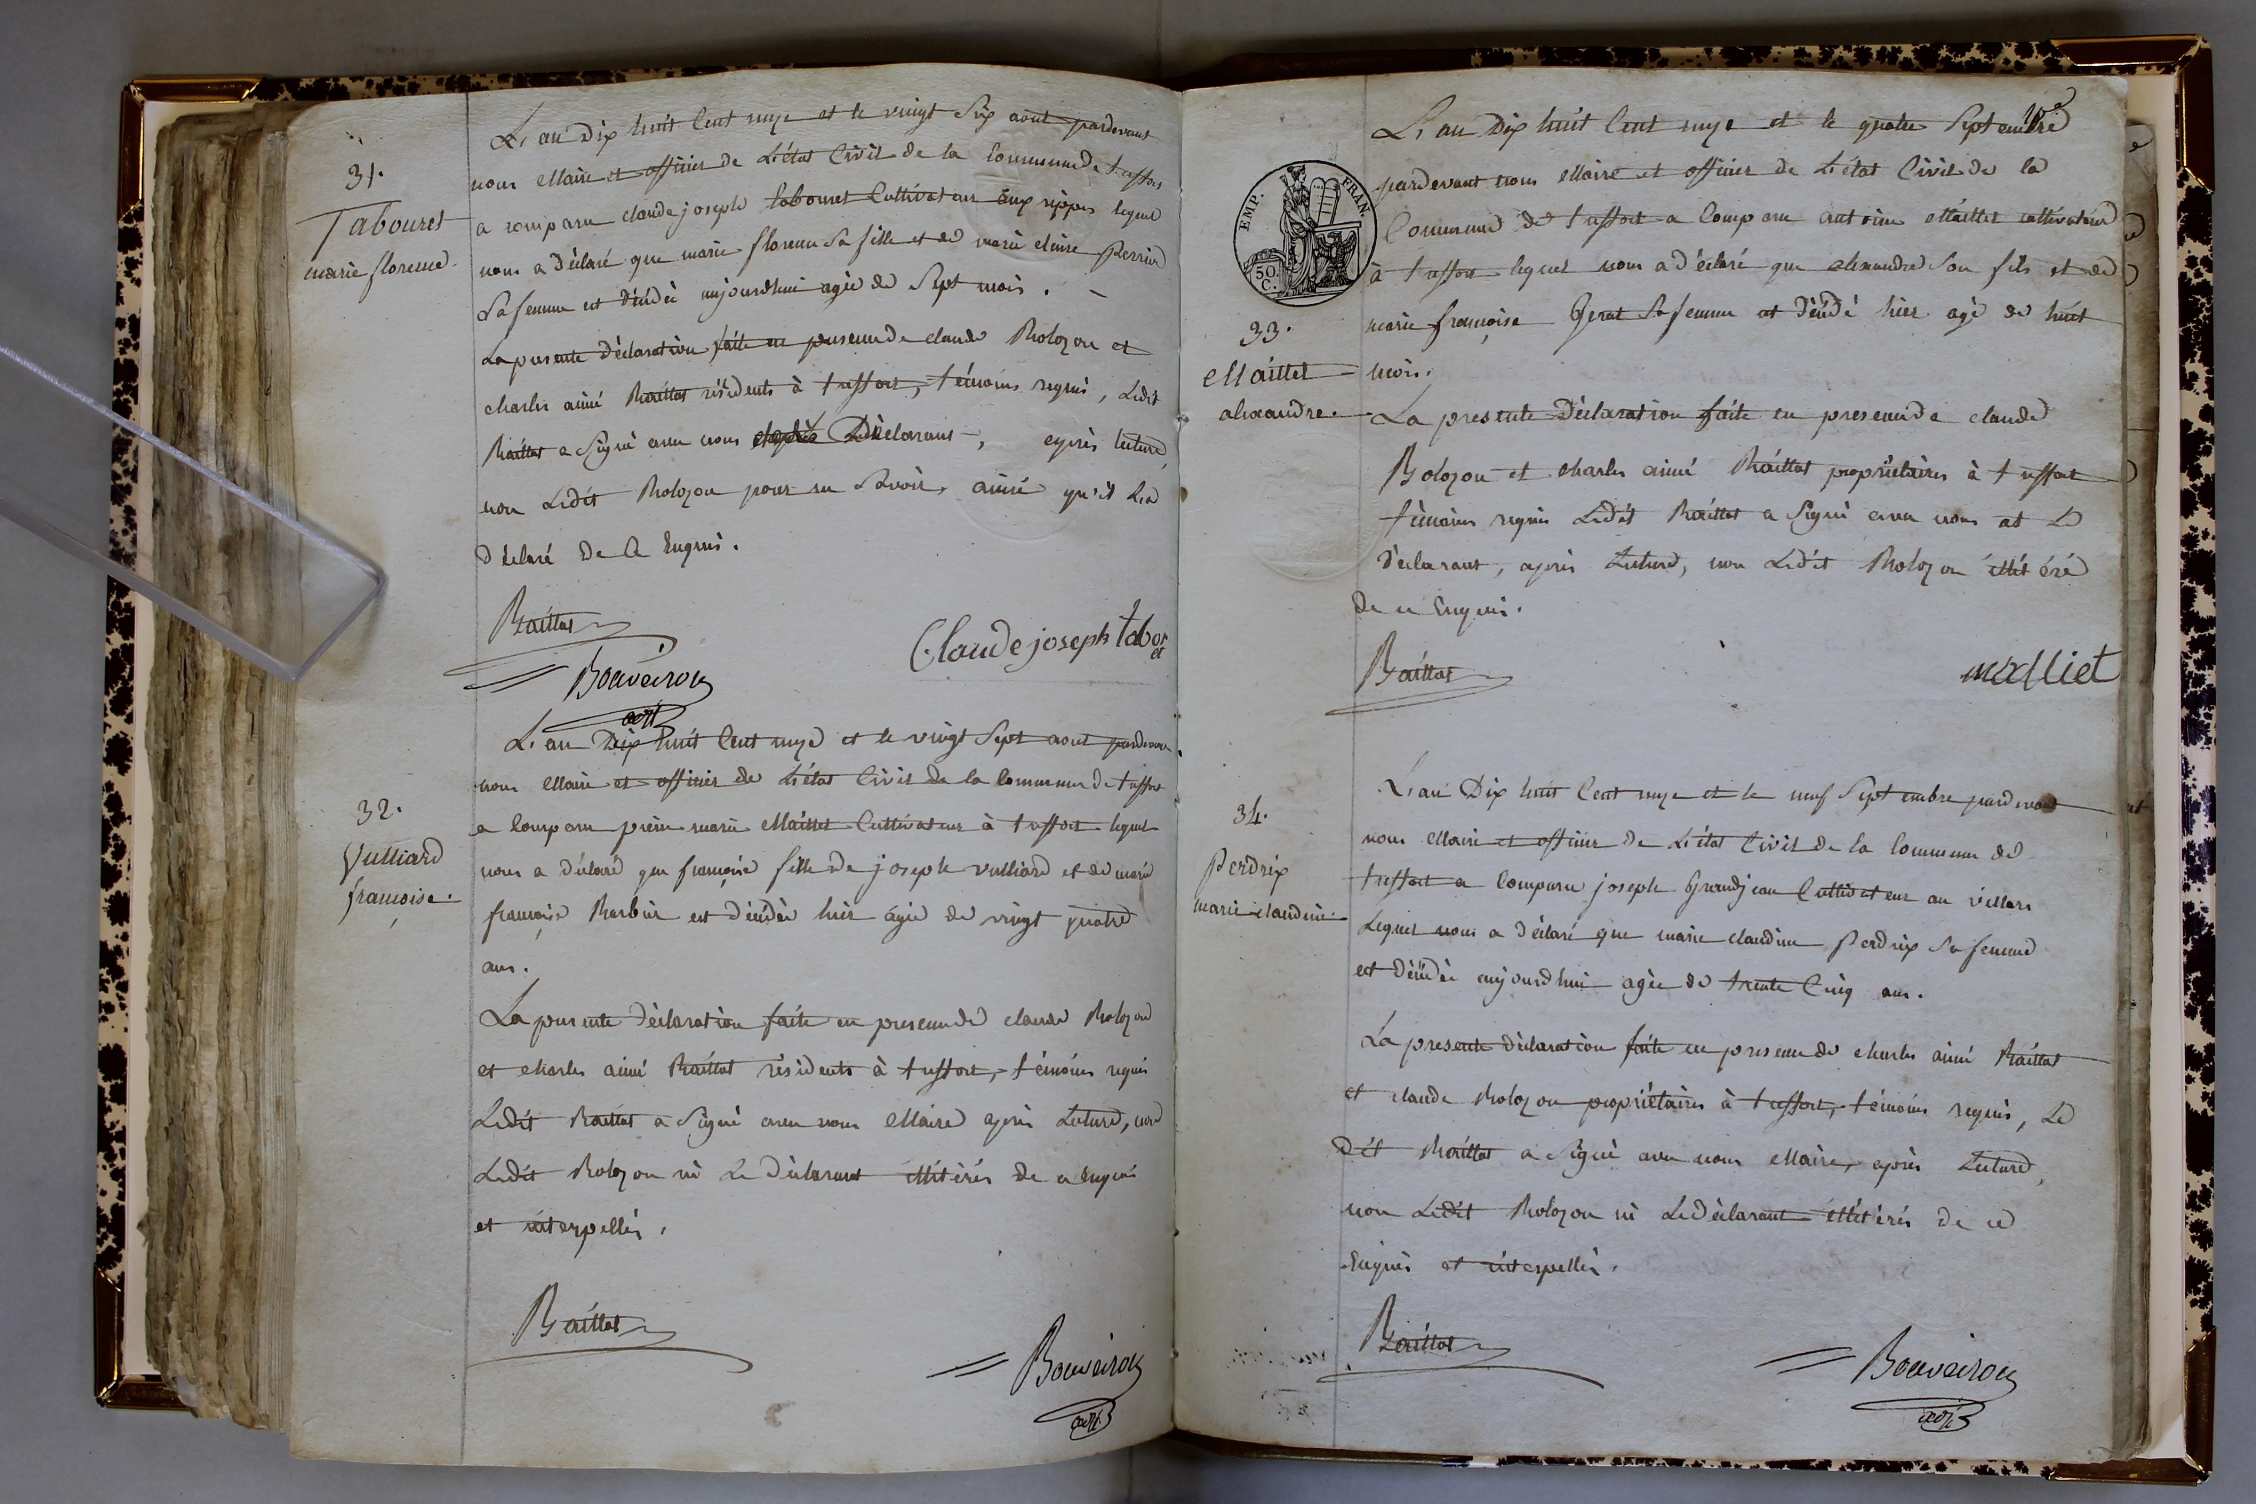 31.
Tabouret
marie florence.
L'an Dix huit Cent onze et le vingt Six aout pardevant
nous Maire et officier de L'état Civil de la Commune de treffort
a comparu claude joseph tabouret Cultivateur aux rippes lequel
nous a déclaré que marie florence Sa fille et de marie claire Perrin
Sa femme est décédée aujourdhui agée de Sept mois.
La presente déclaration faite en presence de claude Bolozon et
charles aimé Baillat résidents à treffort, témoins requis, Ledit
Baillat a Signé avec nous Déclarant, après lecture,
non Ledit Bolozon pour ne Savoir, ainsi qu'il L'a
déclaré De Ce Enquis.
Baillat
Claude joseph tabor
et
Bouveiron
32.
Vulliard
francoise.
L'an Dix huit Cent onze et le vingt Sept aout pardevant
nous Maire et officier de L'état Civil de la Commune de treffort
a Comparu pierre marie Maillet Cultivateur à treffort lequel
nous a déclaré que françoise fille de joseph vulliard et de marie
françoise Barbier est décédée hier agée de vingt quatre
ans.
La presente déclaration faite en presence de claude Bolozon
et charles aimé Baillat résidents à treffort, témoins requis
Ledit Baillat a Signé avec nous Maire après Lecture, non
Ledit Bolozon ni Le Déclarant illitérés de ce Enquis
et interpellés.
Baillat
Bouveiron
EMP. FRAN.
50.
C.
33.
Maillet
alexandre.
L'an Dix huit Cent onze et le quatre Septembre
pardevant nous Maire et officier de L'état Civil de la
Commune de treffort a Comparu antoine Maillet cultivateur
à treffort lequel nous a déclaré que alexandre Son fils et de
marie françoise Gerat Sa femme est décédé hier agé de huit
mois.
La presente Déclaration faite en presence de claude
Bolozon et charles aimé Baillat propriétaires à treffort
témoins requis Ledit Baillat a Signé avec nous et Le
déclarant, après Lecture, non Ledit Bolozon illitéré
de ce Enquis.
Baillat
malliet
34.
Perdrix
marie claudine.
L'an Dix huit Cent onze et le neuf Septembre pardevant
nous Maire et officier de L'état Civil de la Commune de
treffort a Comparu joseph Grandjean Cultivateur au villars
Lequel nous a déclaré que marie claudine Perdrix Sa femme
est décédée aujourdhui agée de trente Cinq ans.
La presente déclaration faite en presence de charles aimé Baillat
et claude Bolozon propriétaires à treffort, témoins requis, Le
dit Baillat a Signé avec nous Maire, après Lecture,
non Ledit Bolozon ni Le déclarant illitérés de ce
Enquis et interpellés.
Baillat
Bouveiron